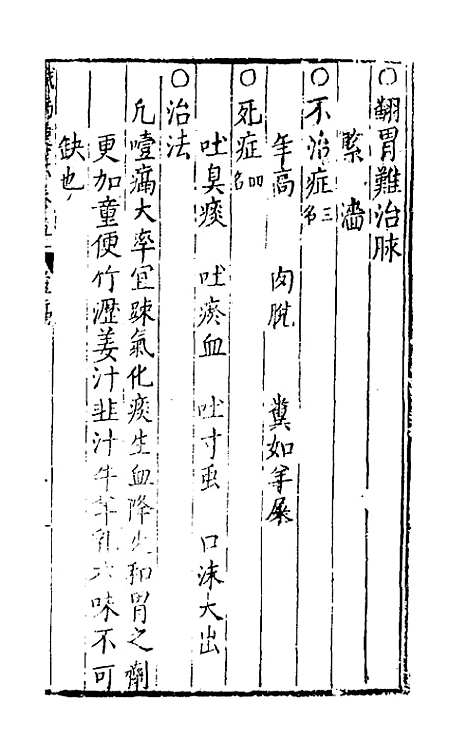 ○翻胃難治脉
緊 濇
○不治症三名
年高 肉脫 糞如羊屎
○死症四名
吐臭痰 吐瘀血 吐寸虫 口沫大出
○治法
凡噎膈大率宜踈氣化痰生血降火和胃之劑
更加童便竹瀝姜汁韭汁牛羊乳六味不可
缺也